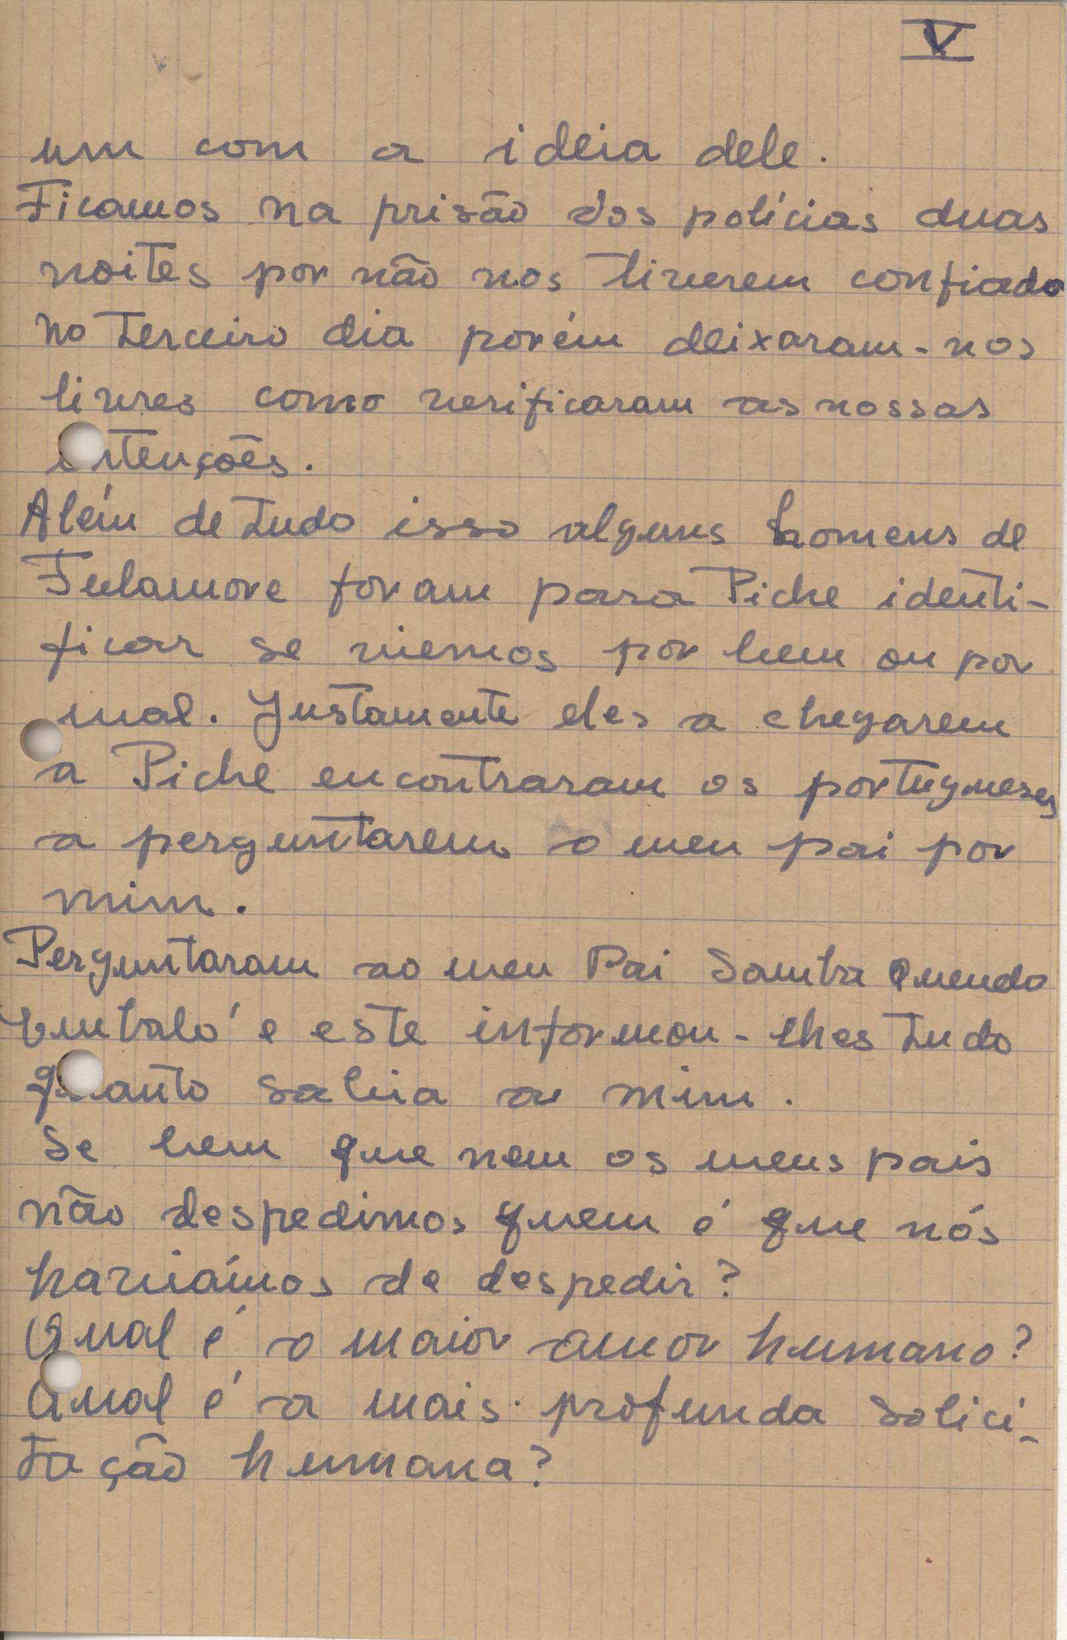 V
um com a ideia dele.
Ficamos na prisão dos polícias duas
noites por não nos tiverem confiado
no terceiro dia porém deixaram-nos
livres como verificaram as nossas
intenções.
Além de tudo isso alguns homens de
Fulamore foram para Piche identi-
ficar se viemos por bem ou por
mal. Justamente eles a chegarem
a Piche encontraram os portugueses
a perguntarem o meu pai por
mim.
Perguntaram ao meu Pai Samba Quenda
Embaló e este informou-lhes tudo
quanto sabia a mim.
Se bem que nem os meus pais
não despedimos quem é que nós
havíamos de despedir?
Qual é o maior amor humano?
Qual é a mais profunda solici-
tação humana?